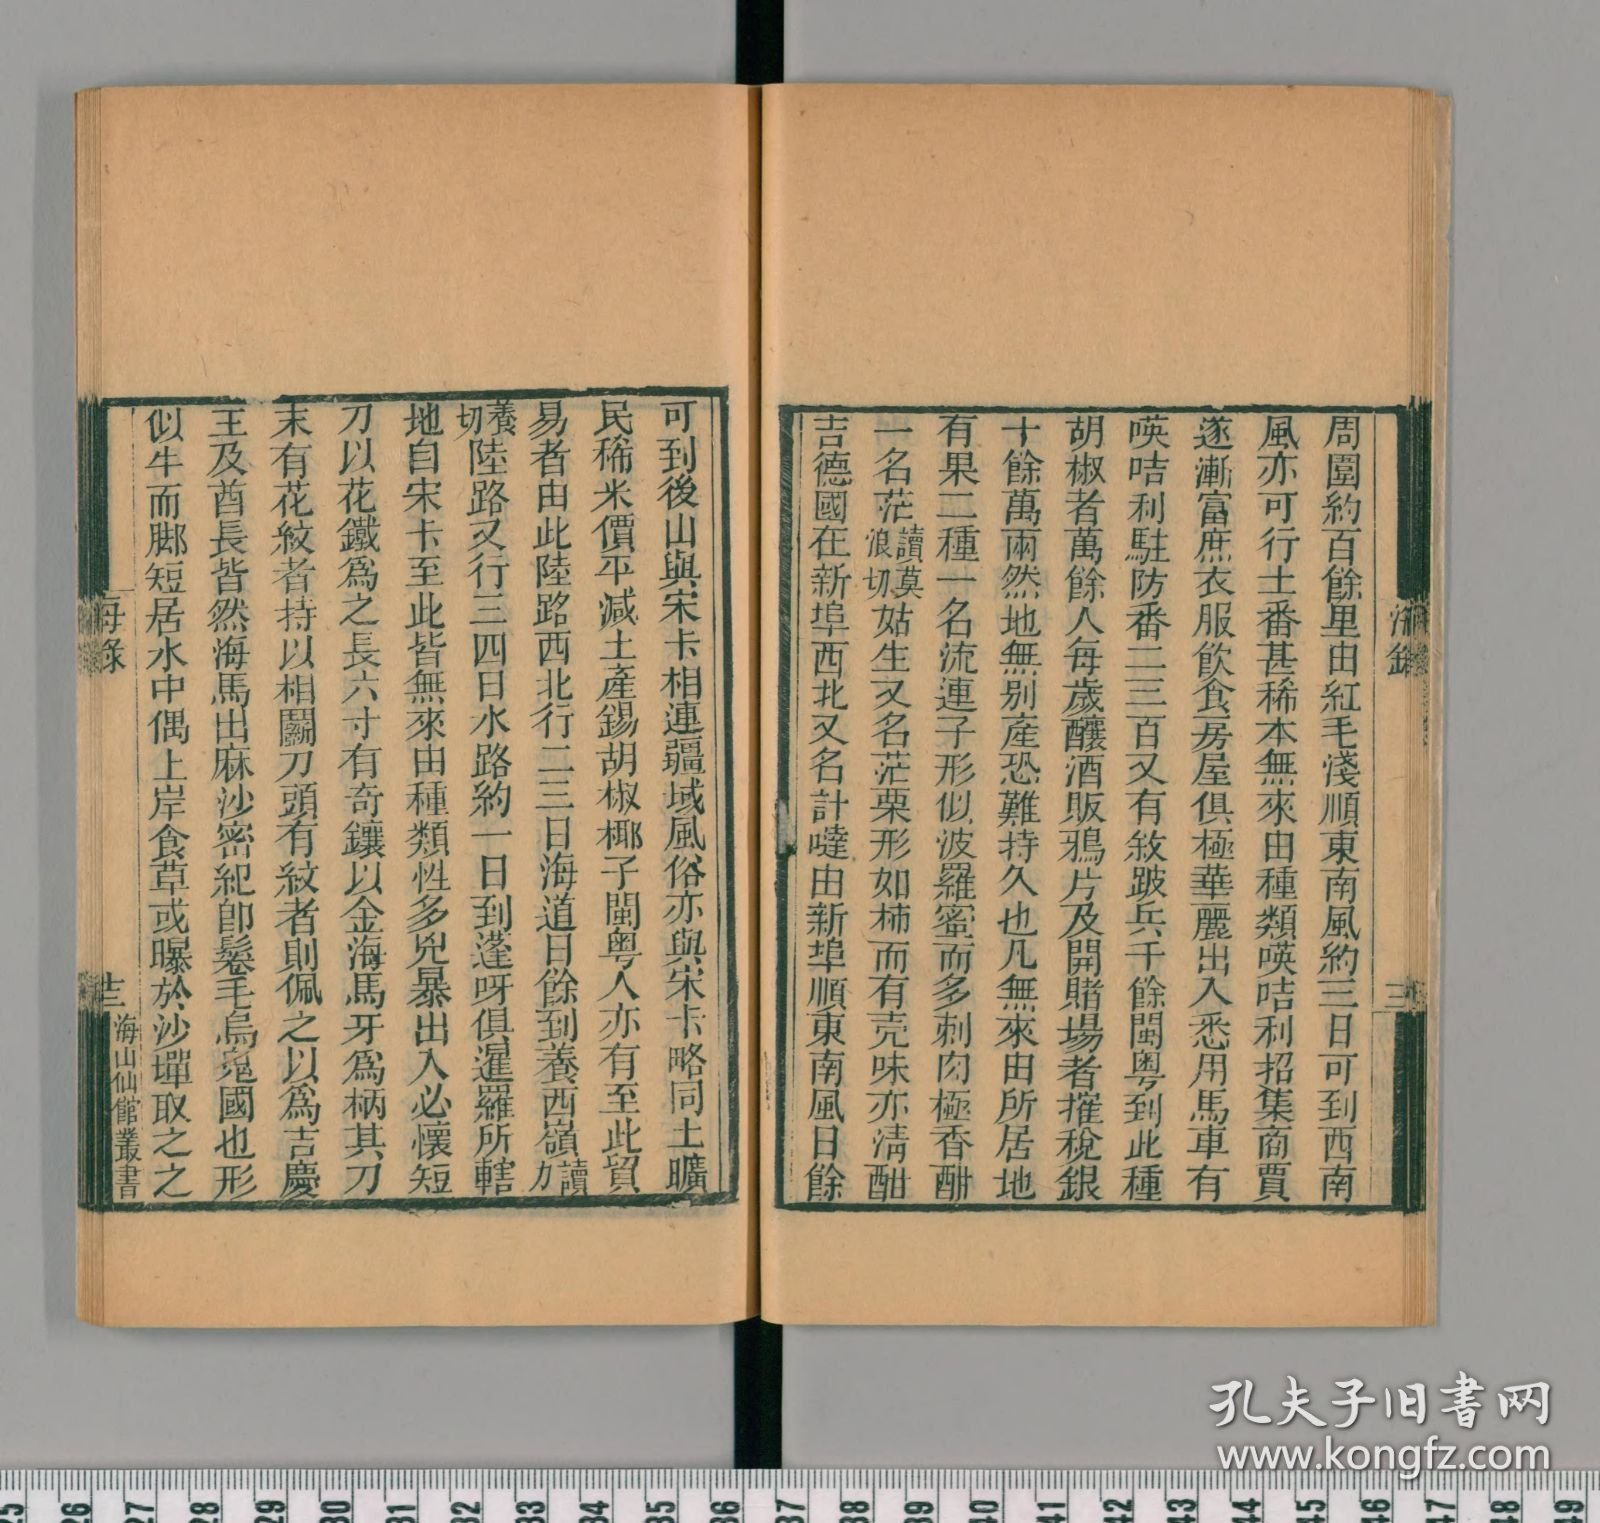 周圍約百餘里由紅毛淺順東南風約三日可到西南
風亦可行土番甚稀本無來由種類𠸄咭利招集商賈
遂漸富庶衣服飲食房屋俱極華麗出入悉用馬車有
𠸄咭利駐防番二三百又有敘跛兵千餘閩粵到此種
胡椒者萬餘人每歲釀酒販鴉片及開賭場者搉稅銀
十餘萬兩然地無別產恐難持久也凡無來由所居地
有果二種一名流連子形似波羅蜜而多刺肉極香酣
一名茫讀莫浪切姑生又名茫栗形如柿而有壳味亦淸酣
吉德國在新埠西北又名計噠由新埠順東南風日餘
可到後山與宋卡相連疆域風俗亦與宋卡略同土曠
民稀米價平減土產錫胡椒椰子閩粵人亦有至此貿
易者由此陸路西北行二三日海道日餘到養西嶺讀力
養切陸路又行三四日水路約一日到蓬呀俱暹羅所轄
地自宋卡至此皆無來由種類性多兇暴出入必懷短
刀以花鐵爲之長六寸有奇鑲以金海馬牙爲柄其刀
末有花紋者持以相鬭刀頭有紋者則佩之以爲吉慶
王及酋長皆然海馬出麻沙密紀卽鬈毛烏鬼國也形
似牛而脚短居水中偶上岸食草或曝於沙墠取之之
海錄
海山仙館叢書
孔夫子旧书网
www.kongfz.com
25 26 27 28 29 30 31 32 33 34 35 36 37 38 39 40 41 42 43 44 45 46 47 48 49